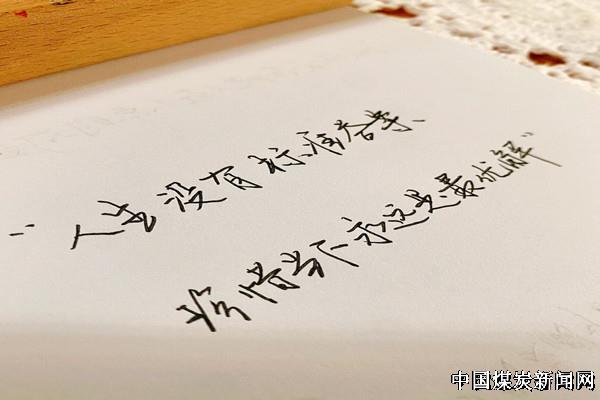 “人生没有标准答案、
珍惜当下永远是最优解”
中国煤炭新闻网